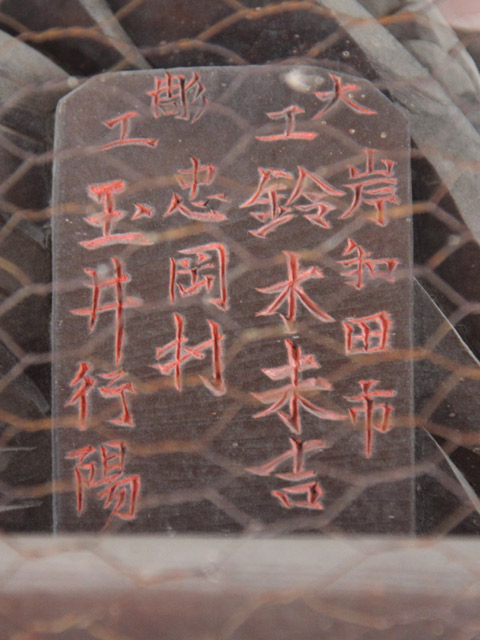 大岸和田市
工鈴木未吉
彫忠岡村
工玉井行陽